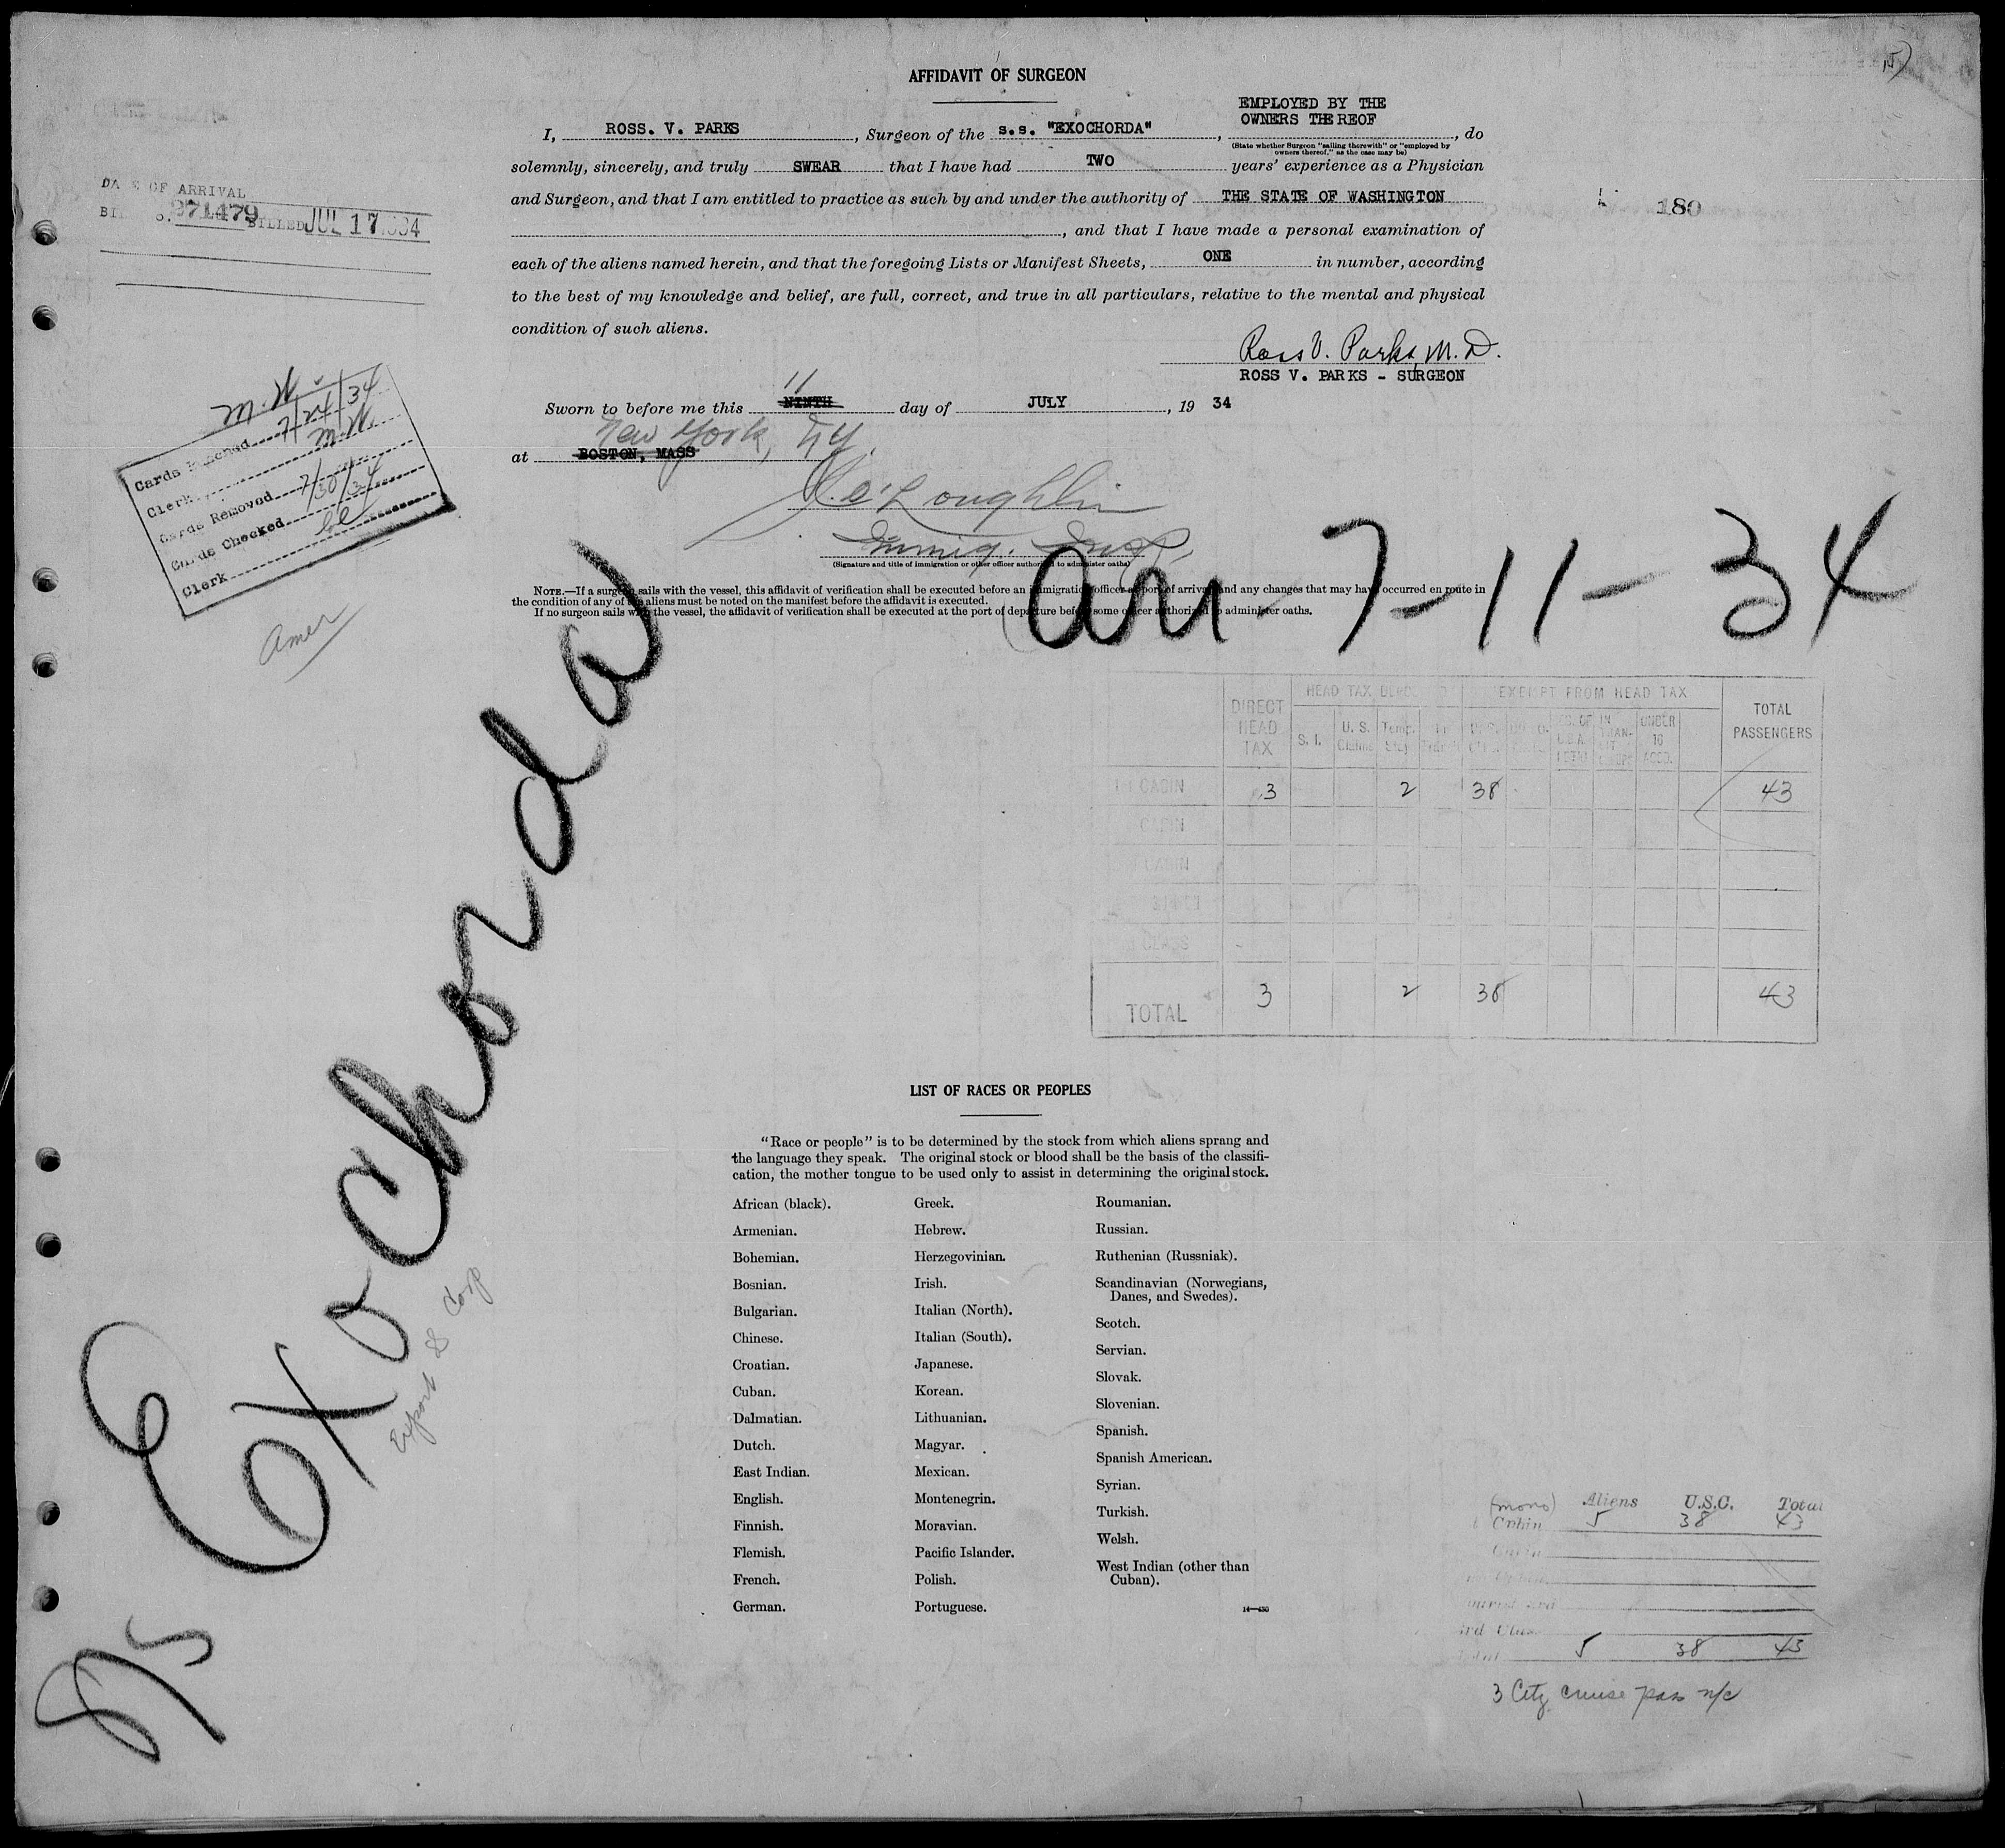 AFFIDAVIT OF SURGEON
I, ROSS. V. PARKS, Surgeon of the s.s. "EXOCHORDA", EMPLOYED BY THE OWNERS THEREOF, do
(State whether Surgeon "sailing therewith" or "employed by owners thereof," as the case may be)
solemnly, sincerely, and truly SWEAR that I have had TWO years' experience as a Physician
and Surgeon, and that I am entitled to practice as such by and under the authority of THE STATE OF WASHINGTON
, and that I have made a personal examination of
each of the aliens named herein, and that the foregoing Lists or Manifest Sheets, ONE in number, according
to the best of my knowledge and belief, are full, correct, and true in all particulars, relative to the mental and physical
condition of such aliens.
Ross V. Parks, M.D.
ROSS V. PARKS - SURGEON
11
Sworn to before me this NINTH day of JULY, 19 34
New York, NY.
at BOSTON, MASS
O'Loughlin
Immig. Insp.
(Signature and title of immigration or other officer authorized to administer oaths)
NOTE.—If a surgeon sails with the vessel, this affidavit of verification shall be executed before an immigration officer at port of arrival and any changes that may have occurred en route in
the condition of any of the aliens must be noted on the manifest before the affidavit is executed.
If no surgeon sails with the vessel, the affidavit of verification shall be executed at the port of departure before some officer authorized to administer oaths.
DATE OF ARRIVAL
971479 BILLED JUL 17 1934
180
M.W.
Cards Punched 7/24/34
Clerk M.W.
Cards Removed 7/30/34
Cards Checked
Clerk
Amer
Arr - 7-11-34
S/S Exochorda
Export & Corp
DIRECT HEAD TAX
HEAD TAX
S. I.
U. S. Claims
Temp. Stay
EXEMPT FROM HEAD TAX
UNDER 16
TOTAL PASSENGERS
1st CABIN 3 2 38 43
CABIN
CABIN
CLASS
TOTAL 3 2 38 43
LIST OF RACES OR PEOPLES
"Race or people" is to be determined by the stock from which aliens sprang and
the language they speak. The original stock or blood shall be the basis of the classifi-
cation, the mother tongue to be used only to assist in determining the original stock.
African (black).
Armenian.
Bohemian.
Bosnian.
Bulgarian.
Chinese.
Croatian.
Cuban.
Dalmatian.
Dutch.
East Indian.
English.
Finnish.
Flemish.
French.
German.
Greek.
Hebrew.
Herzegovinian.
Irish.
Italian (North).
Italian (South).
Japanese.
Korean.
Lithuanian.
Magyar.
Mexican.
Montenegrin.
Moravian.
Pacific Islander.
Polish.
Portuguese.
Roumanian.
Russian.
Ruthenian (Russniak).
Scandinavian (Norwegians,
Danes, and Swedes).
Scotch.
Servian.
Slovak.
Slovenian.
Spanish.
Spanish American.
Syrian.
Turkish.
Welsh.
West Indian (other than
Cuban).
(mono) Aliens U.S.C. Total
Cabin 5 38 43
3rd Class
Total 5 38 43
3 City cruise pass n/c